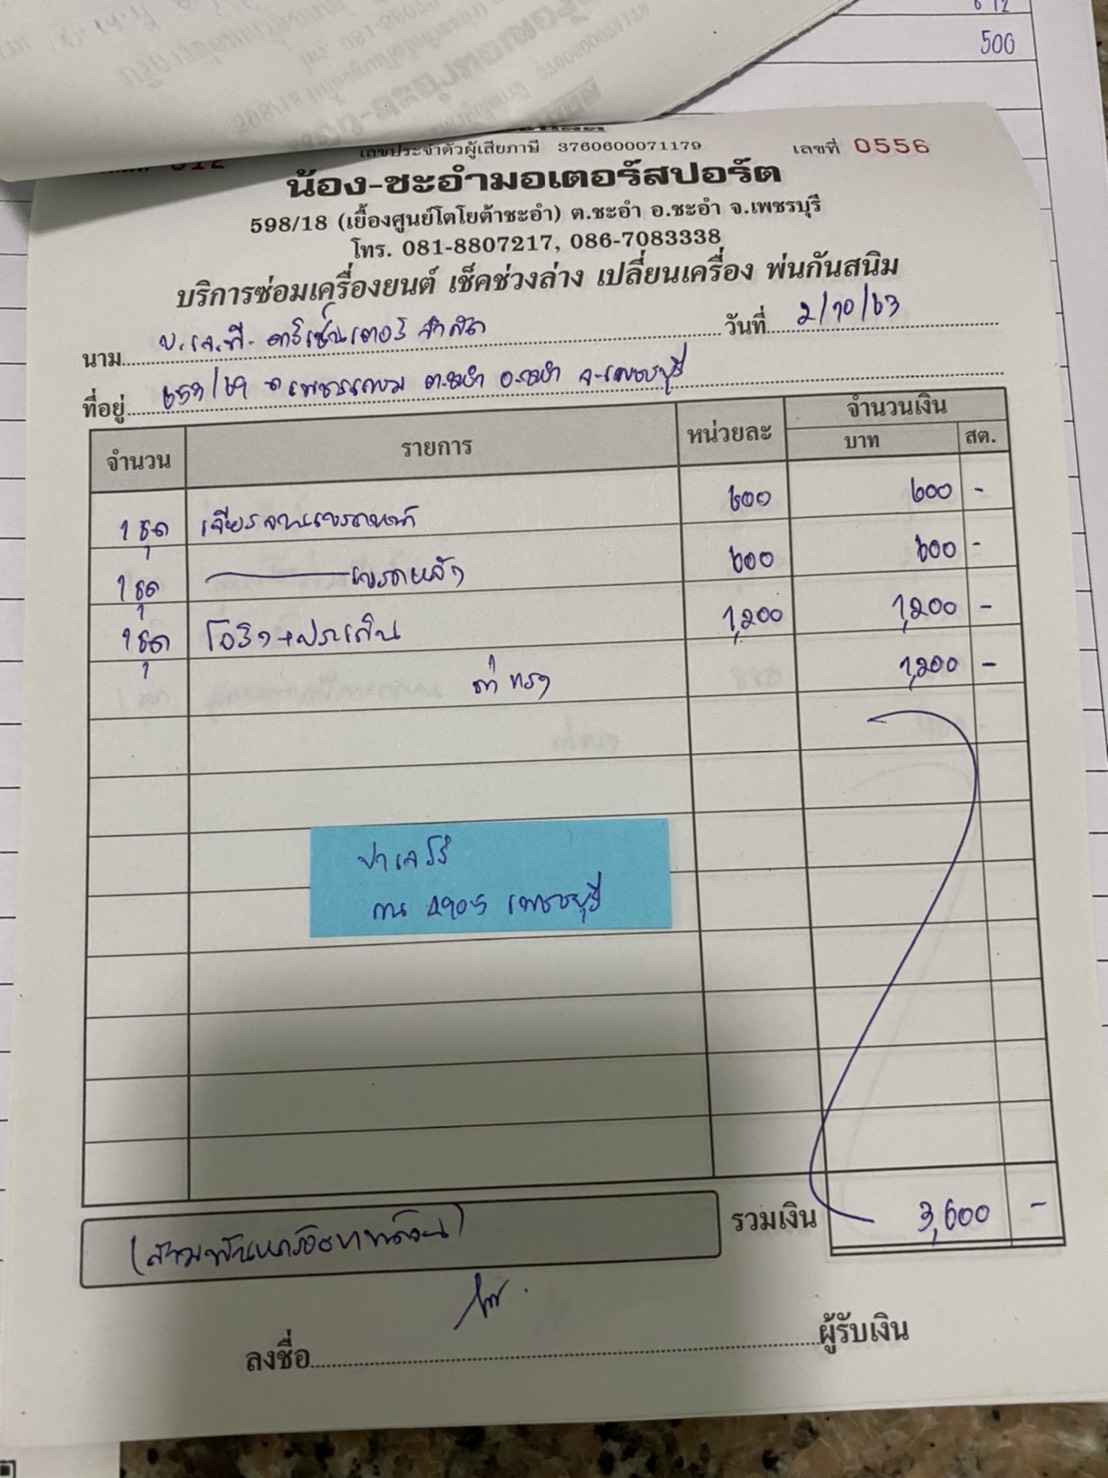 612
500
เลขประจำตัวผู้เสียภาษี 3760600071179
เลขที่ 0556
น้อง-ชะอำมอเตอร์สปอร์ต
598/18 (เยื้องศูนย์โตโยต้าชะอำ) ต.ชะอำ อ.ชะอำ จ.เพชรบุรี
โทร. 081-8807217, 086-7083338
บริการซ่อมเครื่องยนต์ เช็คช่วงล่าง เปลี่ยนเครื่อง พ่นกันสนิม
นาม บ.เจ.พี. จำกัด วันที่ 2/10/63
ที่อยู่ ถ.เพชรเกษม ต.ชะอำ อ.ชะอำ จ.เพชรบุรี
จำนวน รายการ หน่วยละ จำนวนเงิน
บาท สต.
1 ชุด เจียรจานเบรคหน้า 600 600 -
1 ชุด เบรคหลัง 600 600 -
1 ชุด โอริง+ประเก็น 1,200 1,200 -
ค่าแรง 1,200 -
ปาเจโร่
กน 2905 เพชรบุรี
(สามพันหกร้อยบาทถ้วน) รวมเงิน 3,600 -
ลงชื่อ ผู้รับเงิน